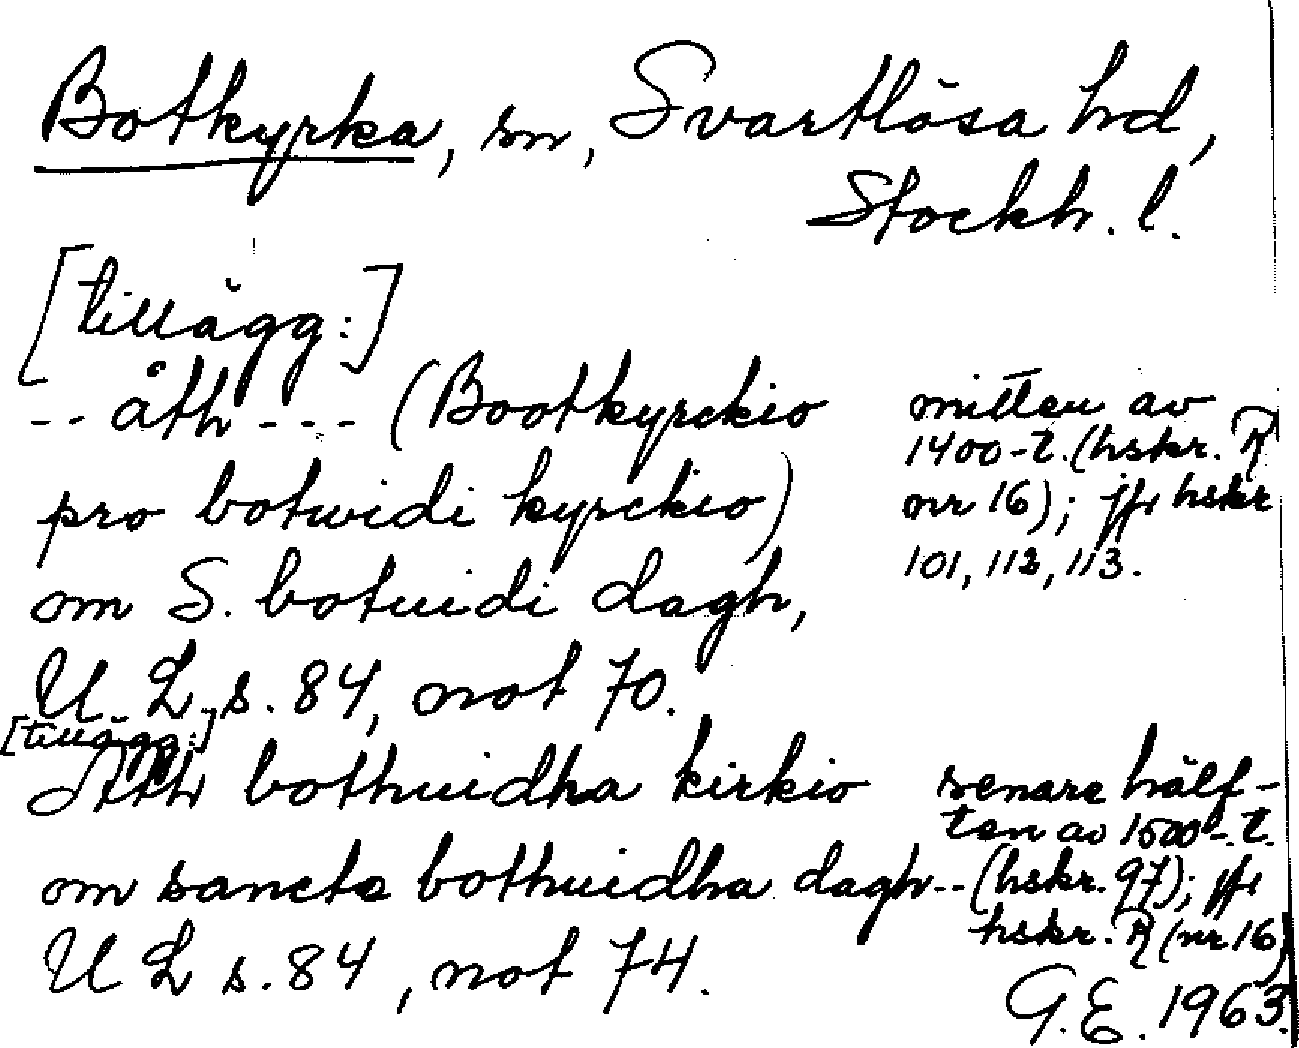 Botkyrka, sn, Svartlösa hd,
Stockh. l.
[tillägg:]
-- åth --- (Bootkyrckio
pro botwidi kyrckio)
om S. botuidi dagh,
U L s. 84, not 70.
mitten av
1400-t. (hskr. R
nr 16); jfr hskr
101, 112, 113.
[tillägg:]
Ath bothuidha kirkio
om sancta bothuidha dagh --
U L s. 84, not 74.
senare hälf-
ten av 1500-t.
(hskr. 97); jfr
hskr. R (nr 16)
G.E. 1963.